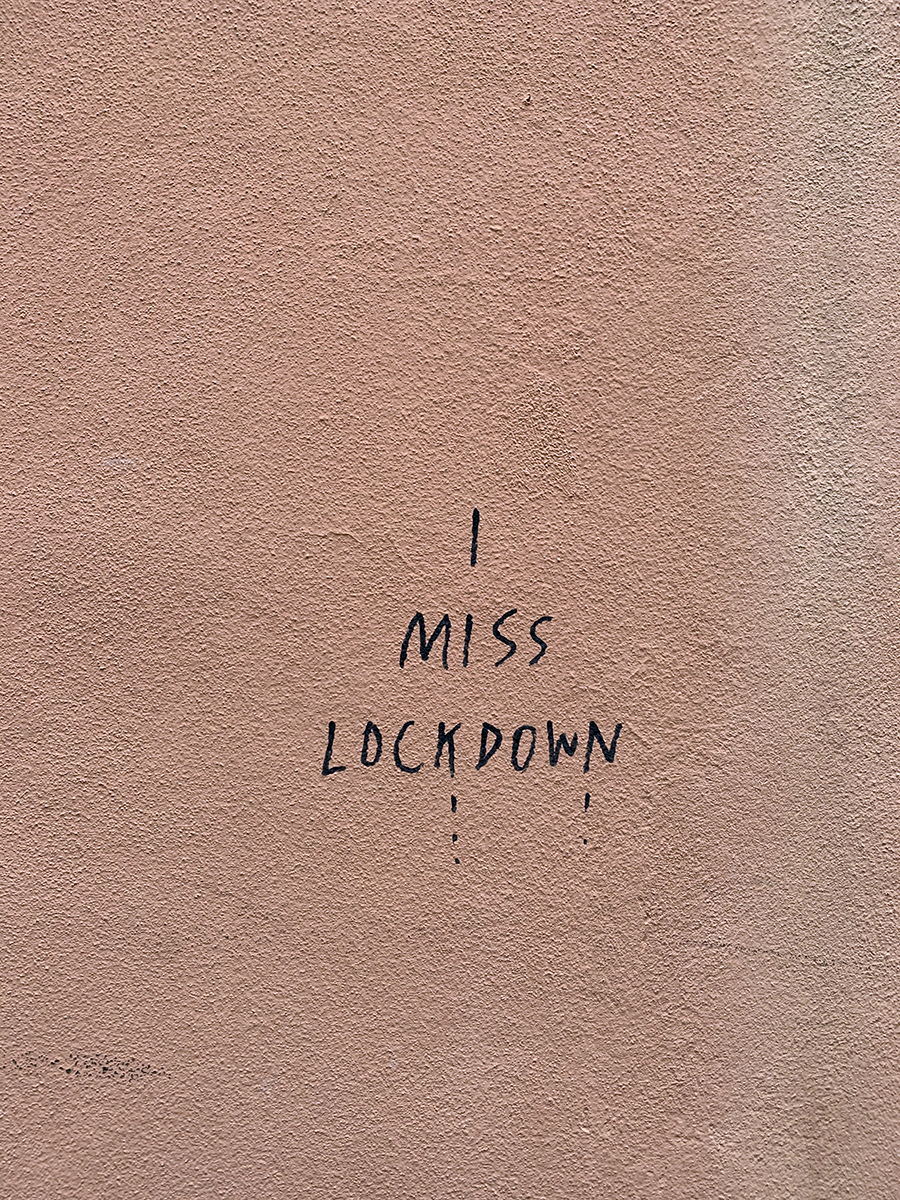 I
MISS
LOCKDOWN